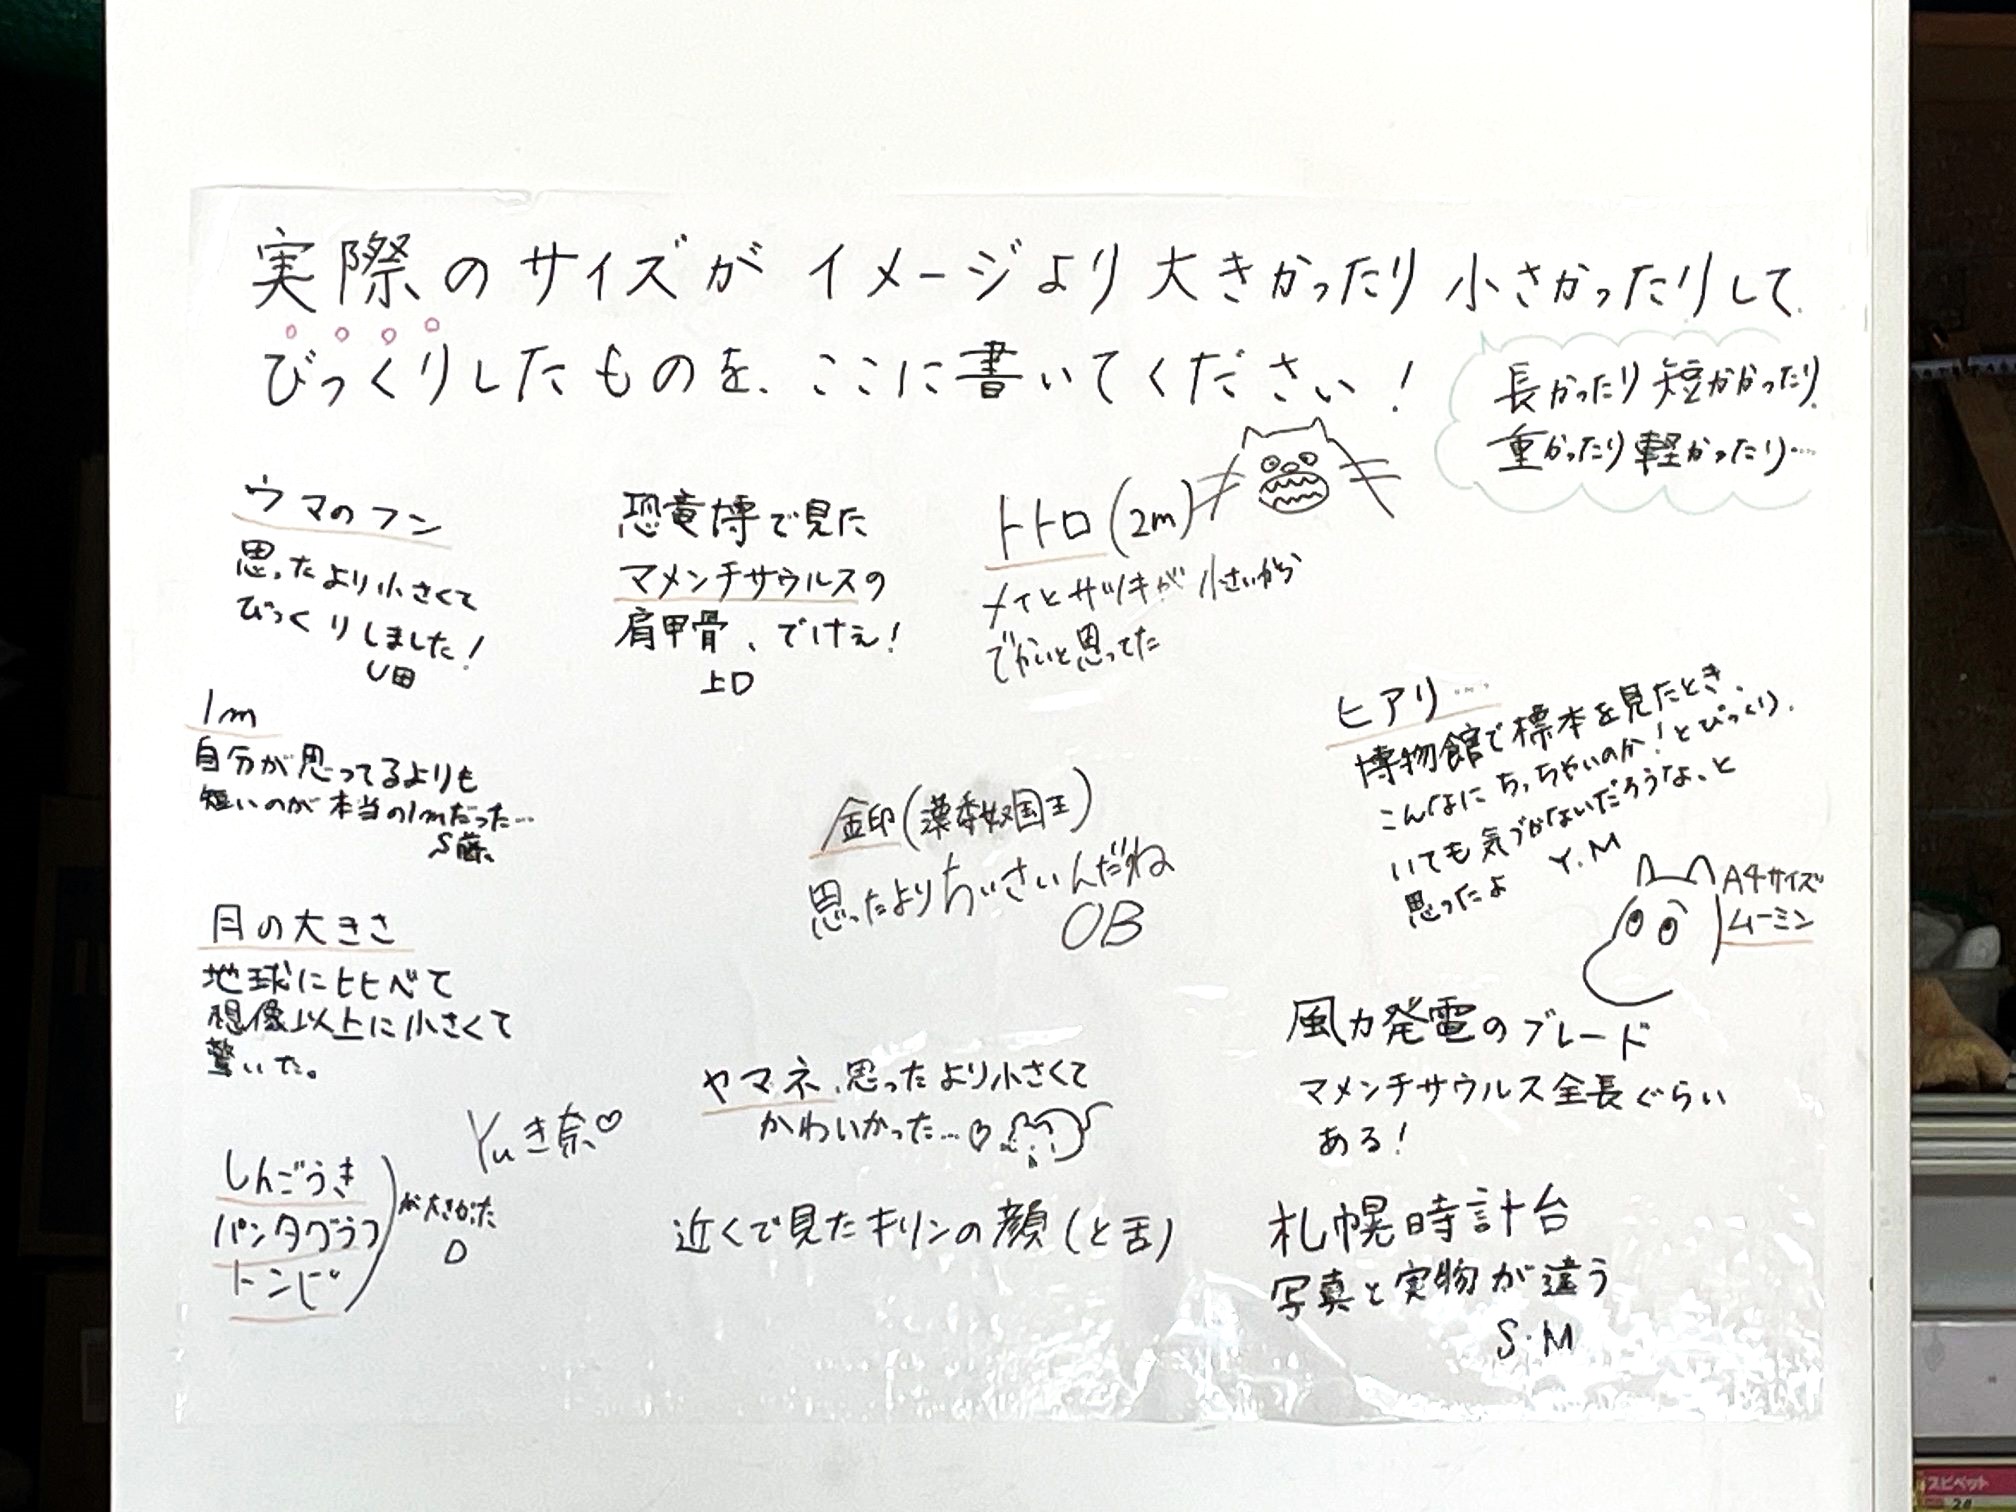 実際のサイズがイメージより大きかったり小さかったりして
びっくりしたものを、ここに書いてください!
長かったり短かかったり
重かったり軽かったり…
ウマのフン
思ったより小さくて
びっくりしました!
U田
恐竜博で見た
マメンチサウルスの
肩甲骨、でけぇ!
上口
トトロ(2m)
メイとサツキが小さいから
でかいと思ってた
1m
自分が思ってるよりも
短いのが本当の1mだった…
S藤
金印(漢委奴国王)
思ったよりちいさいんだね
OB
ヒアリ…
博物館で標本を見たとき、
こんなにちっちゃいのか!とびっくり.
いても気づかないだろうな、と
思ったよ
Y.M
A4サイズ
ムーミン
月の大きさ
地球に比べて
想像以上に小さくて
驚いた。
Yuき奈♡
風力発電のブレード
マメンチサウルス全長ぐらい
ある!
ヤマネ、思ったより小さくて
かわいかった…♡
しんごうき
パンタグラフ
トンビ
が大きかった
D
近くで見たキリンの顔(と舌)
札幌時計台
写真と実物が違う
S.M
スピペット